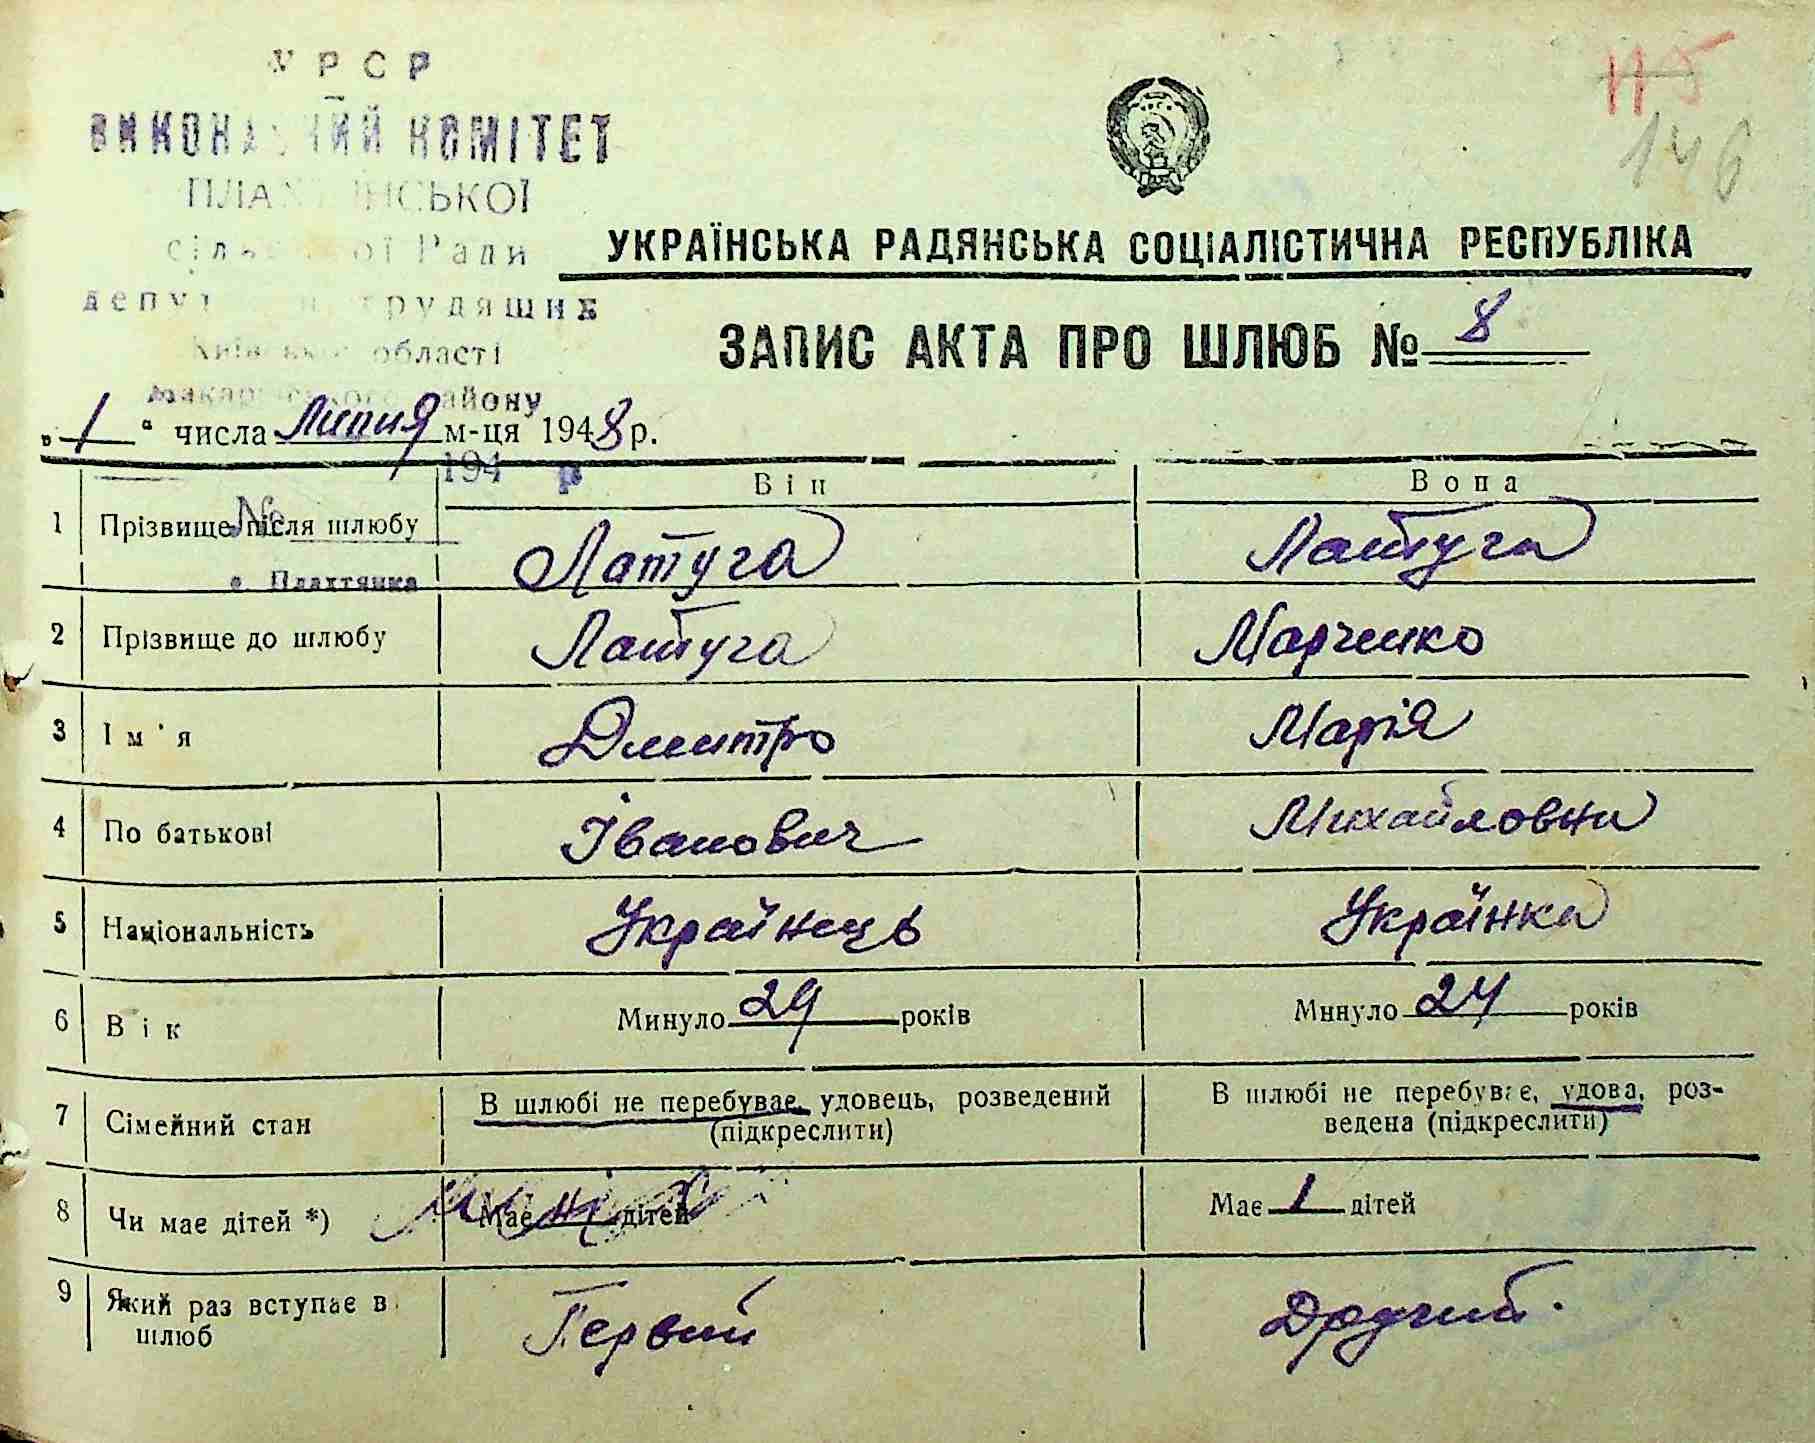 УРСР
ВИКОНАВЧИЙ КОМІТЕТ
ПЛАХТЯНСЬКОЇ
сільської Ради
депутатів трудящих
Київської області
Макарівського району
194 р
№
с. Плахтянка
115
146
УКРАЇНСЬКА РАДЯНСЬКА СОЦІАЛІСТИЧНА РЕСПУБЛІКА
ЗАПИС АКТА ПРО ШЛЮБ № 8
„1“ числа Липня м-ця 1948 р.
Він Вона
1 Прізвище після шлюбу Латуга Латуга
2 Прізвище до шлюбу Латуга Марченко
3 Ім'я Дмитро Марія
4 По батькові Іванович Михайловна
5 Національність Українець Українка
6 Вік Минуло 29 років Минуло 24 років
7 Сімейний стан В шлюбі не перебуває, удовець, розведений (підкреслити) В шлюбі не перебуває, удова, роз-
ведена (підкреслити)
8 Чи має дітей *) Має дітей Має 1 дітей
9 Який раз вступає в шлюб Первий Другий.